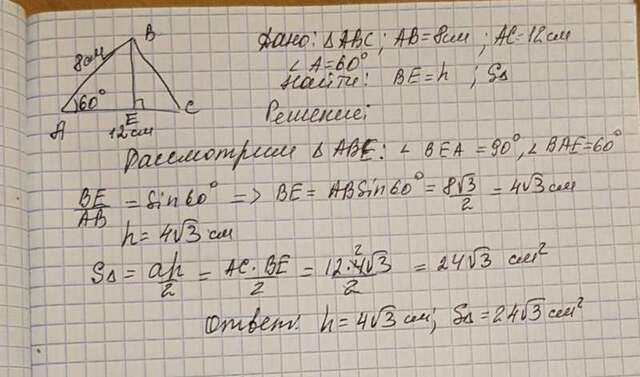 B
8см
60°
A
E
C
12см
Дано: △ABC; AB=8см; AC=12см
∠A=60°
Найти: BE=h; S△
Решение:
Рассмотрим △ABE: ∠BEA=90°, ∠BAE=60°
BE/AB = sin60° => BE = ABsin60° = 8√3/2 = 4√3 см
h = 4√3 см
S△ = ah/2 = AC·BE/2 = 12·4√3/2 = 24√3 см²
Ответ: h=4√3 см; S△=24√3 см²